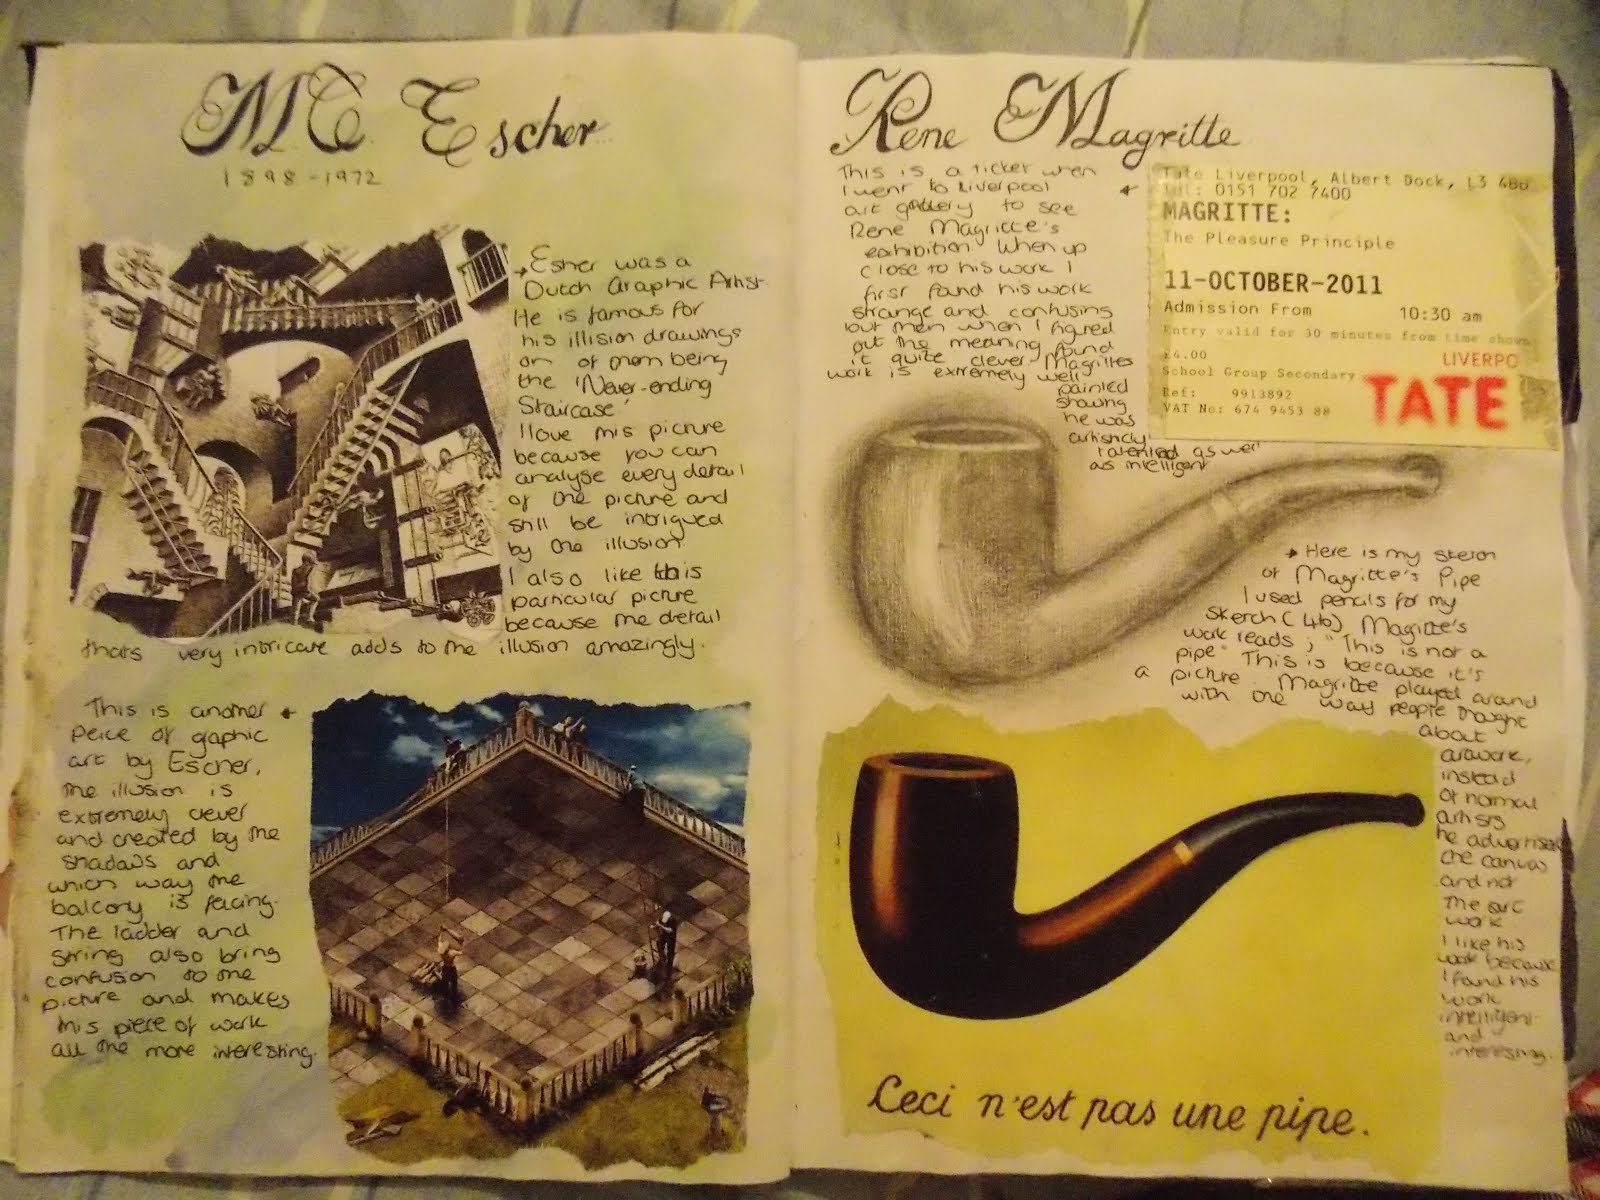 MC Escher
1898-1972
Esher was a
Dutch Graphic Artist.
He is famous for
his illision drawings
on of them being
the 'Never-ending
Staircase'
I love this picture
because you can
analyse every detail
of the picture and
still be intrigued
by the illusion
I also like this
particular picture
because the detail
thats very intricate adds to the illusion amazingly.
This is another
peice of gaphic
art by Escher,
the illusion is
extremely clever
and created by the
shadows and
which way the
balcony is facing.
The ladder and
string also bring
confusion to the
picture and makes
this piece of work
all the more interesting.
Rene Magritte
This is a ticket when
I went to Liverpool
art gallery to see
Rene Magritte's
exhibition when up
close to his work I
first found his work
strange and confusing
but then when I figred
out the meaning found
it quite clever Magrittes
work is extremely well
painted
showing
he was
artisticly
talented as well
as intelligent
Tate Liverpool, Albert Dock, L3 4BB
Tel: 0151 702 7400
MAGRITTE:
The Pleasure Principle
11-OCTOBER-2011
Admission From 10:30 am
Entry valid for 30 minutes from time shown
£4.00
LIVERPO
School Group Secondary
Ref: 9913892
VAT No: 674 9453 88
TATE
Here is my sketch
of Magritte's Pipe
I used pencils for my
sketch (4b) Magritte's
work reads; "This is not a
pipe" This is because it's
a picture. Magritte played around
with the way people thought
about
artwork,
instead
of normal
artists
he advertised
the canvas
and not
the art
work
I like his
work because
I found his
work
intelligent
and
interesting.
Ceci n'est pas une pipe.